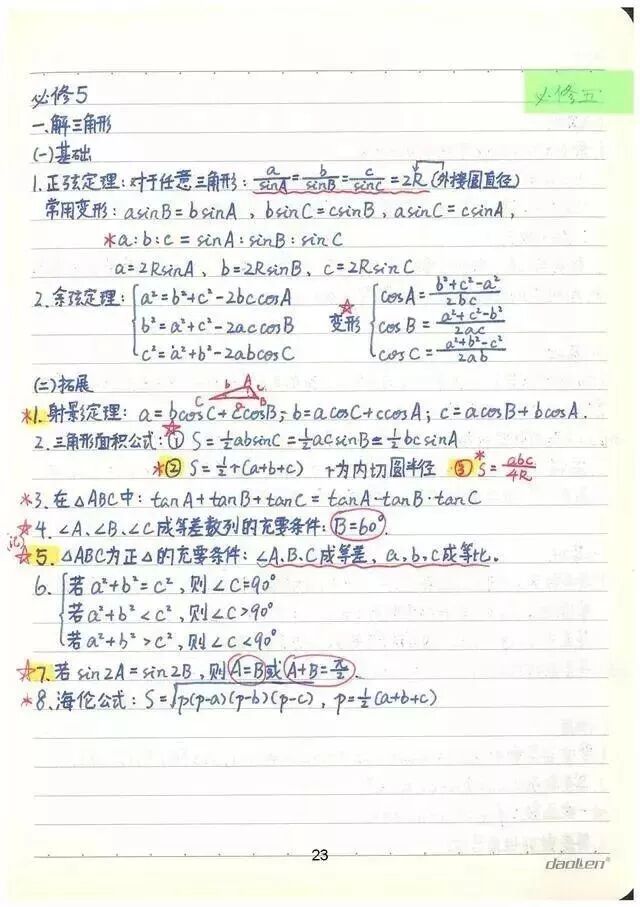 必修五
必修5
一.解三角形
(一)基础
1.正弦定理:对于任意三角形: a/sinA = b/sinB = c/sinC = 2R (外接圆直径)
常用变形: asinB = bsinA , bsinC = csinB , asinC = csinA ,
*a:b:c = sinA:sinB:sinC
a=2RsinA , b=2RsinB , c=2RsinC
2.余弦定理: { a²=b²+c²-2bccosA 变形 ☆ { cosA = (b²+c²-a²)/2bc
b²=a²+c²-2accosB cosB = (a²+c²-b²)/2ac
c²=a²+b²-2abcosC cosC = (a²+b²-c²)/2ab
(二)拓展
b A c
C a B
*1.射影定理: a=bcosC+ccosB; b=acosC+ccosA; c=acosB+bcosA.
2.三角形面积公式: ☆① S=½absinC=½acsinB=½bcsinA
*② S=½r(a+b+c) r为内切圆半径 ③* S=abc/4R
*3.在△ABC中: tanA+tanB+tanC=tanA·tanB·tanC
☆4.∠A、∠B、∠C成等差数列的充要条件: B=60°.
(记)
☆5.△ABC为正△的充要条件:∠A,B,C成等差, a,b,c成等比.
6. { 若a²+b²=c², 则∠C=90°
若a²+b²<c², 则∠C>90°
若a²+b²>c², 则∠C<90°
☆7.若sin2A=sin2B, 则A=B或A+B=π/2.
*8.海伦公式: S=√p(p-a)(p-b)(p-c) , p=½(a+b+c)
23
daolen